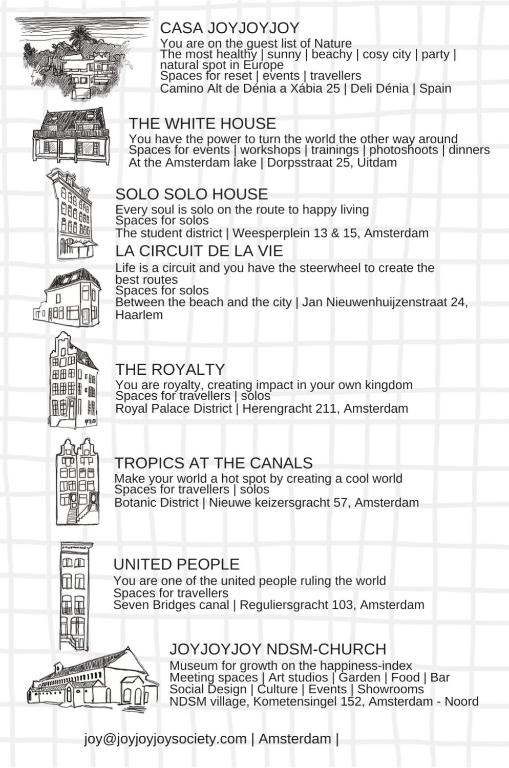 CASA JOYJOYJOY
You are on the guest list of Nature
The most healthy | sunny | beachy | cosy city | party |
natural spot in Europe
Spaces for reset | events | travellers
Camino Alt de Dénia a Xábia 25 | Deli Dénia | Spain
THE WHITE HOUSE
You have the power to turn the world the other way around
Spaces for events | workshops | trainings | photoshoots | dinners
At the Amsterdam lake | Dorpsstraat 25, Uitdam
SOLO SOLO HOUSE
Every soul is solo on the route to happy living
Spaces for solos
The student district | Weesperplein 13 & 15, Amsterdam
LA CIRCUIT DE LA VIE
Life is a circuit and you have the steerwheel to create the
best routes
Spaces for solos
Between the beach and the city | Jan Nieuwenhuijzenstraat 24,
Haarlem
THE ROYALTY
You are royalty, creating impact in your own kingdom
Spaces for travellers | solos
Royal Palace District | Herengracht 211, Amsterdam
TROPICS AT THE CANALS
Make your world a hot spot by creating a cool world
Spaces for travellers | solos
Botanic District | Nieuwe keizersgracht 57, Amsterdam
UNITED PEOPLE
You are one of the united people ruling the world
Spaces for travellers
Seven Bridges canal | Reguliersgracht 103, Amsterdam
JOYJOYJOY NDSM-CHURCH
Museum for growth on the happiness-index
Meeting spaces | Art studios | Garden | Food | Bar
Social Design | Culture | Events | Showrooms
NDSM village, Kometensingel 152, Amsterdam - Noord
joy@joyjoyjoysociety.com | Amsterdam |